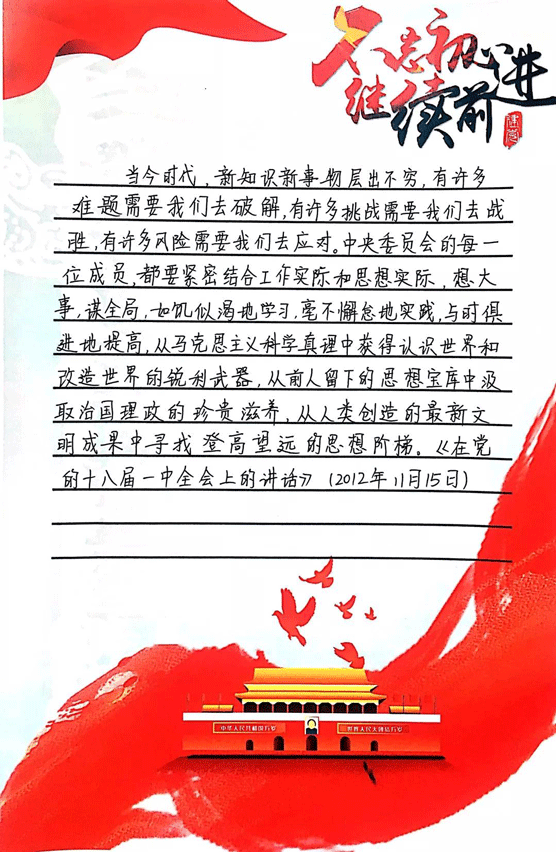 不忘初心
继续前进
建党
当今时代，新知识新事物层出不穷，有许多
难题需要我们去破解，有许多挑战需要我们去战
胜，有许多风险需要我们去应对。中央委员会的每一
位成员，都要紧密结合工作实际和思想实际，想大
事，谋全局，如饥似渴地学习，毫不懈怠地实践，与时俱
进地提高，从马克思主义科学真理中获得认识世界和
改造世界的锐利武器，从前人留下的思想宝库中汲
取治国理政的珍贵滋养，从人类创造的最新文
明成果中寻找登高望远的思想阶梯。《在党
的十八届一中全会上的讲话》（2012年11月15日）
中华人民共和国万岁
世界人民大团结万岁